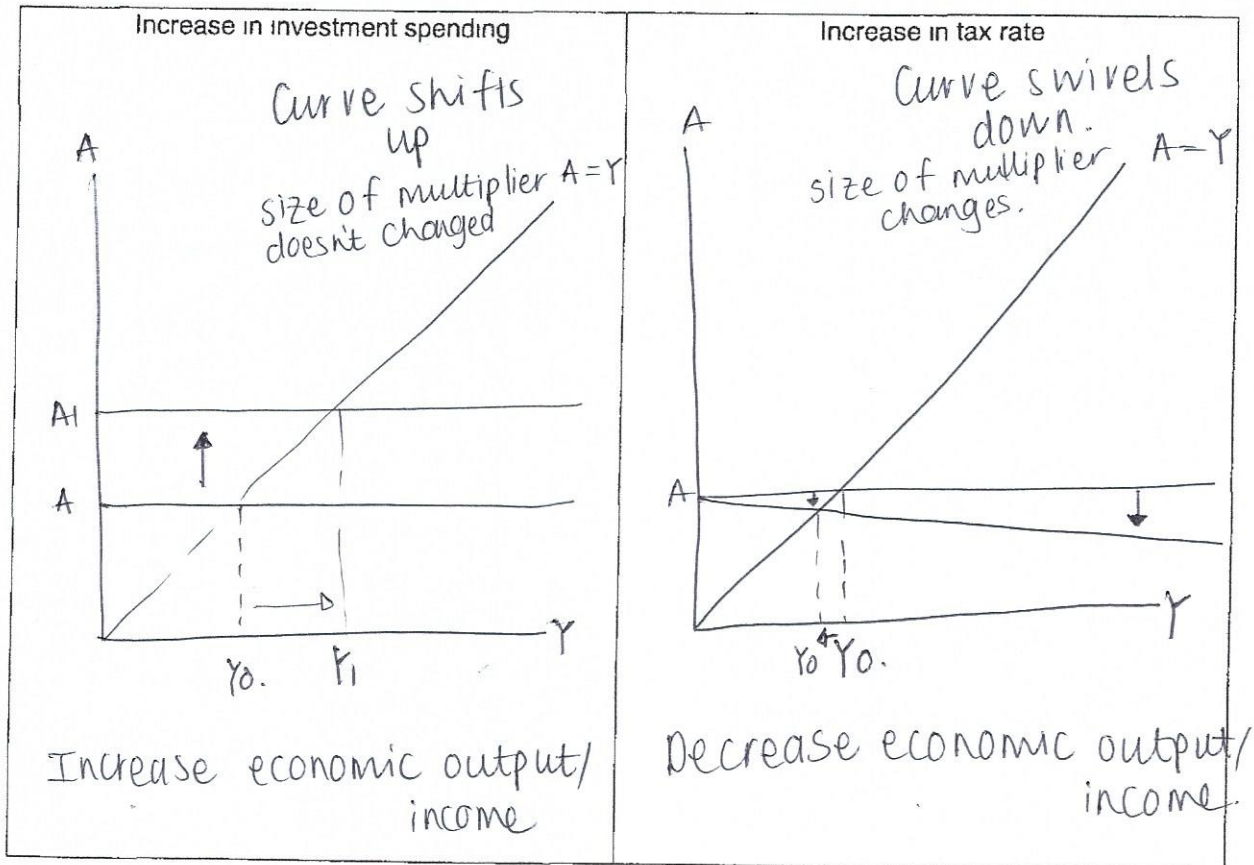 Increase in investment spending
Curve shifts
up
size of multiplier
doesn't changed
A=Y
A
A1
A
Y
Y0.
Y1
Increase economic output/
income
Increase in tax rate
Curve swivels
down.
size of multiplier
changes.
A=Y
A
A
Y
Y0
Y0.
Decrease economic output/
income.